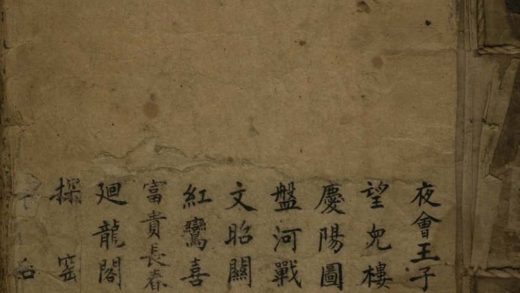 夜會王子
望兒樓
慶陽圖
盤河戰
文昭關
紅鸞喜
富貴長春
廻龍閣
探窑